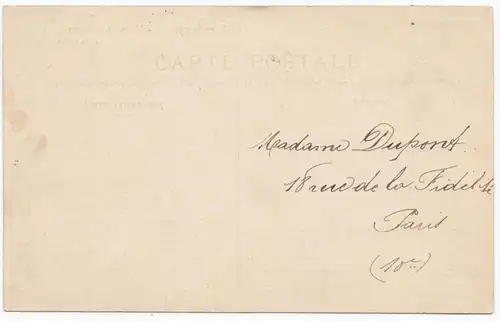 CARTE POSTALE
Madame Dupont
18 rue de la Fidélité
Paris
(10e)